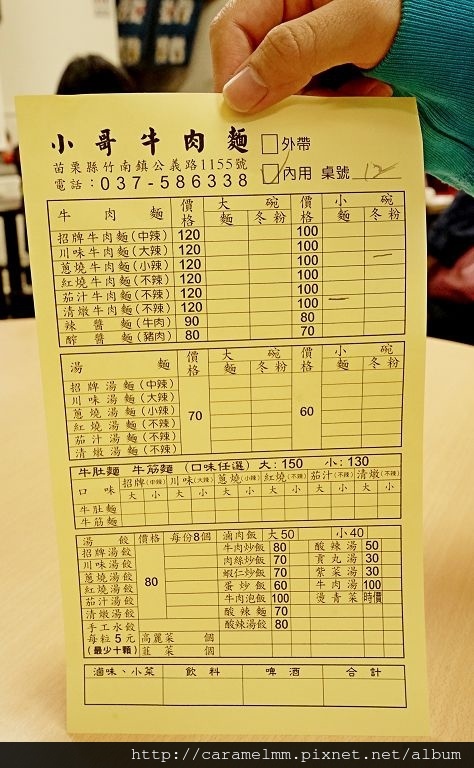 小哥牛肉麵 外帶
苗栗縣竹南鎮公義路1155號 內用 桌號 12
電話：037-586338
牛肉麵 價格 大碗 價格 小碗
麵 冬粉 麵 冬粉
招牌牛肉麵(中辣) 120 100
川味牛肉麵(大辣) 120 100
蔥燒牛肉麵(小辣) 120 100
紅燒牛肉麵(不辣) 120 100
茄汁牛肉麵(不辣) 120 100
清燉牛肉麵(不辣) 120 100
辣醬麵(牛肉) 90 80
酢醬麵(豬肉) 80 70
湯麵 價格 大碗 價格 小碗
麵 冬粉 麵 冬粉
招牌湯麵(中辣)
川味湯麵(大辣)
蔥燒湯麵(小辣) 70 60
紅燒湯麵(不辣)
茄汁湯麵(不辣)
清燉湯麵(不辣)
牛肚麵 牛筋麵 (口味任選) 大:150 小:130
口味 招牌(中辣) 川味(大辣) 蔥燒(小辣) 紅燒(不辣) 茄汁(不辣) 清燉(不辣)
大 小 大 小 大 小 大 小 大 小 大 小
牛肚麵
牛筋麵
湯餃 價格 每份8個 滷肉飯 大50 小40
招牌湯餃 牛肉炒飯 80 酸辣湯 50
川味湯餃 肉絲炒飯 70 貢丸湯 30
蔥燒湯餃 80 蝦仁炒飯 70 紫菜湯 30
紅燒湯餃 蛋炒飯 60 牛肉湯 100
茄汁湯餃 牛肉泡飯 100 燙青菜 時價
清燉湯餃 酸辣麵 70
手工水餃 酸辣湯餃 80
每粒5元 高麗菜 個
(最少十顆) 韮菜 個
滷味、小菜 飲料 啤酒 合計
http://caramelmm.pixnet.net/album